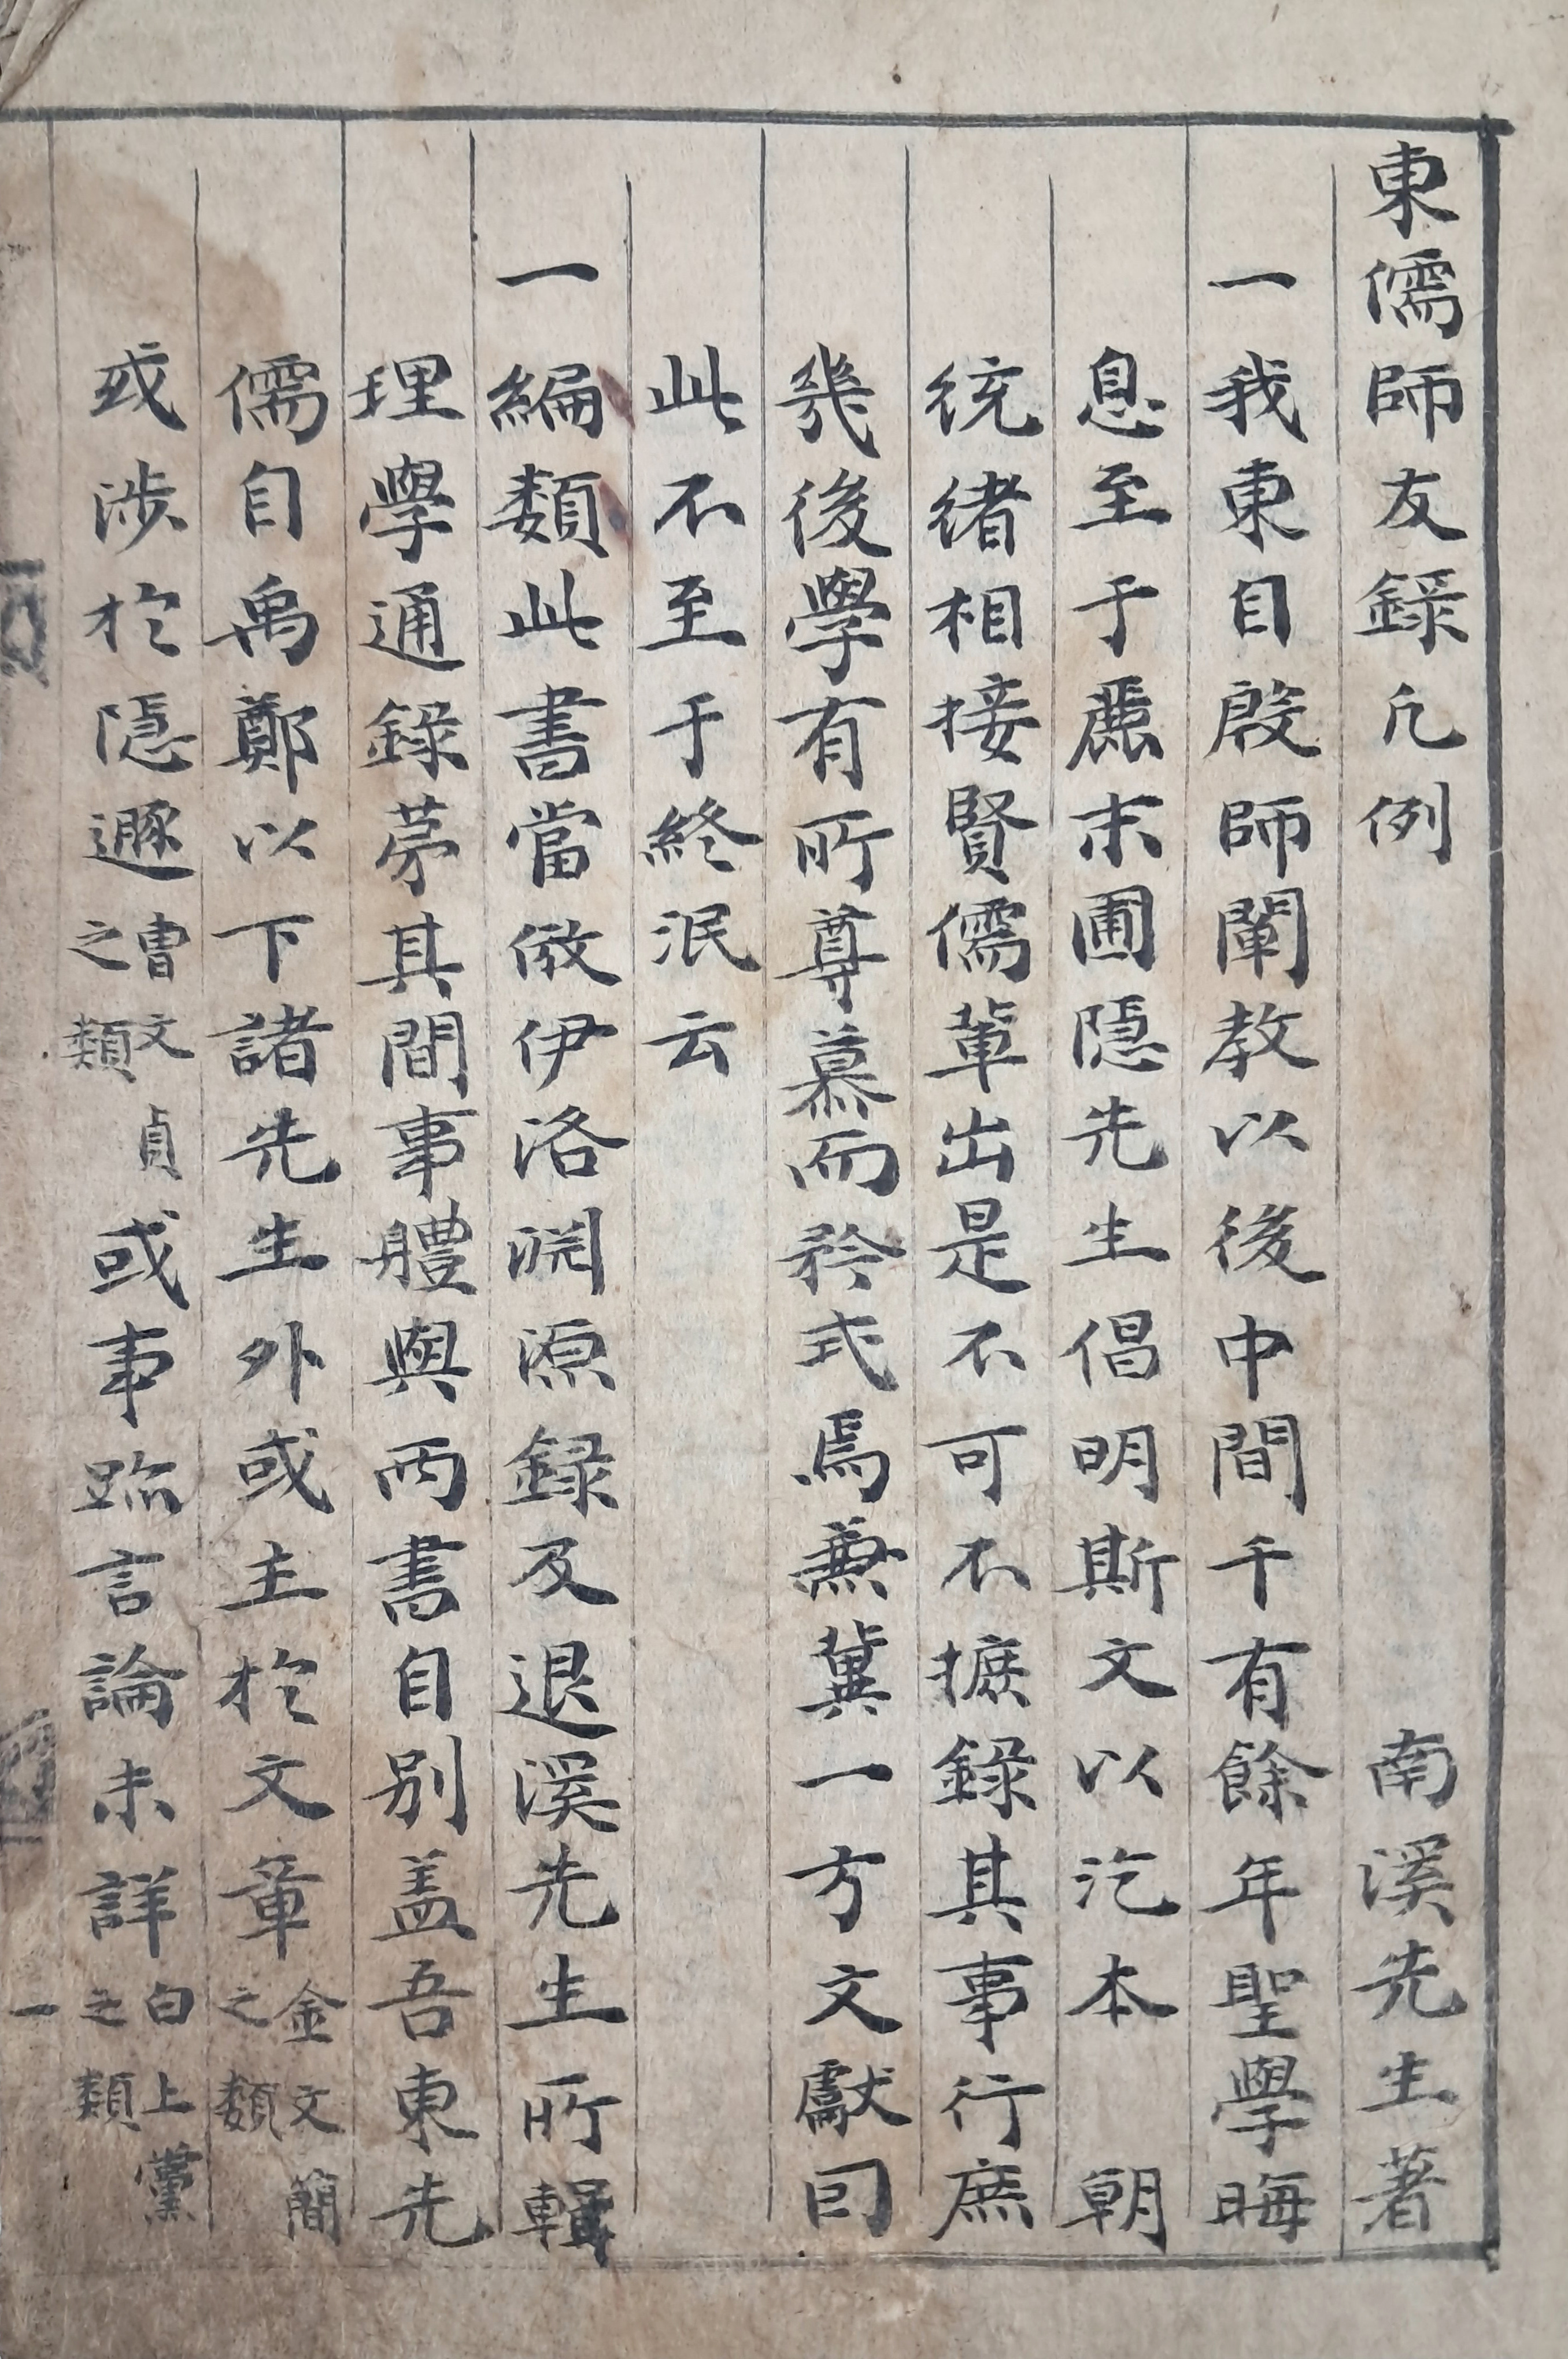 東儒師友錄凡例 南溪先生著
一我東自殷師闡教以後中間千有餘年聖學晦
息至于麗末圃隱先生倡明斯文以汔本 朝
統緖相接賢儒輩出是不可不摭錄其事行庶
幾後學有所尊慕而矜式焉兼冀一方文獻因
此不至于終泯云
一編類此書當倣伊洛淵源録及退溪先生所輯
理學通錄第其間事體與两書自別盖吾東先
儒自禹鄭以下諸先生外或主於文章金文簡之類
或涉於隱遯曺文貞之類或事跡言論未詳白上黨之類
一